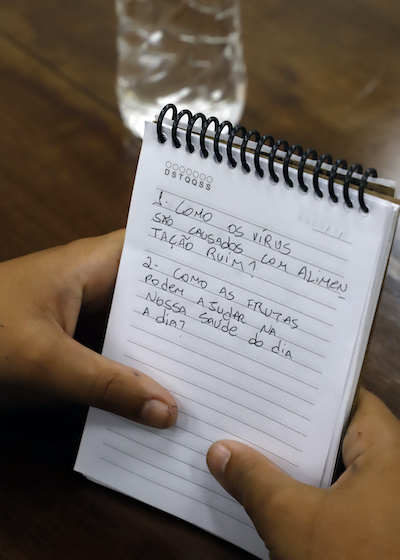 DSTQQSS
1. COMO OS VIRUS
SÃO CAUSADOS COM ALIMEN
TAÇÃO RUIM?
2- COMO AS FRUTAS
PODEM AJUDAR NA
NOSSA SAUDE DO DIA
A DIA?